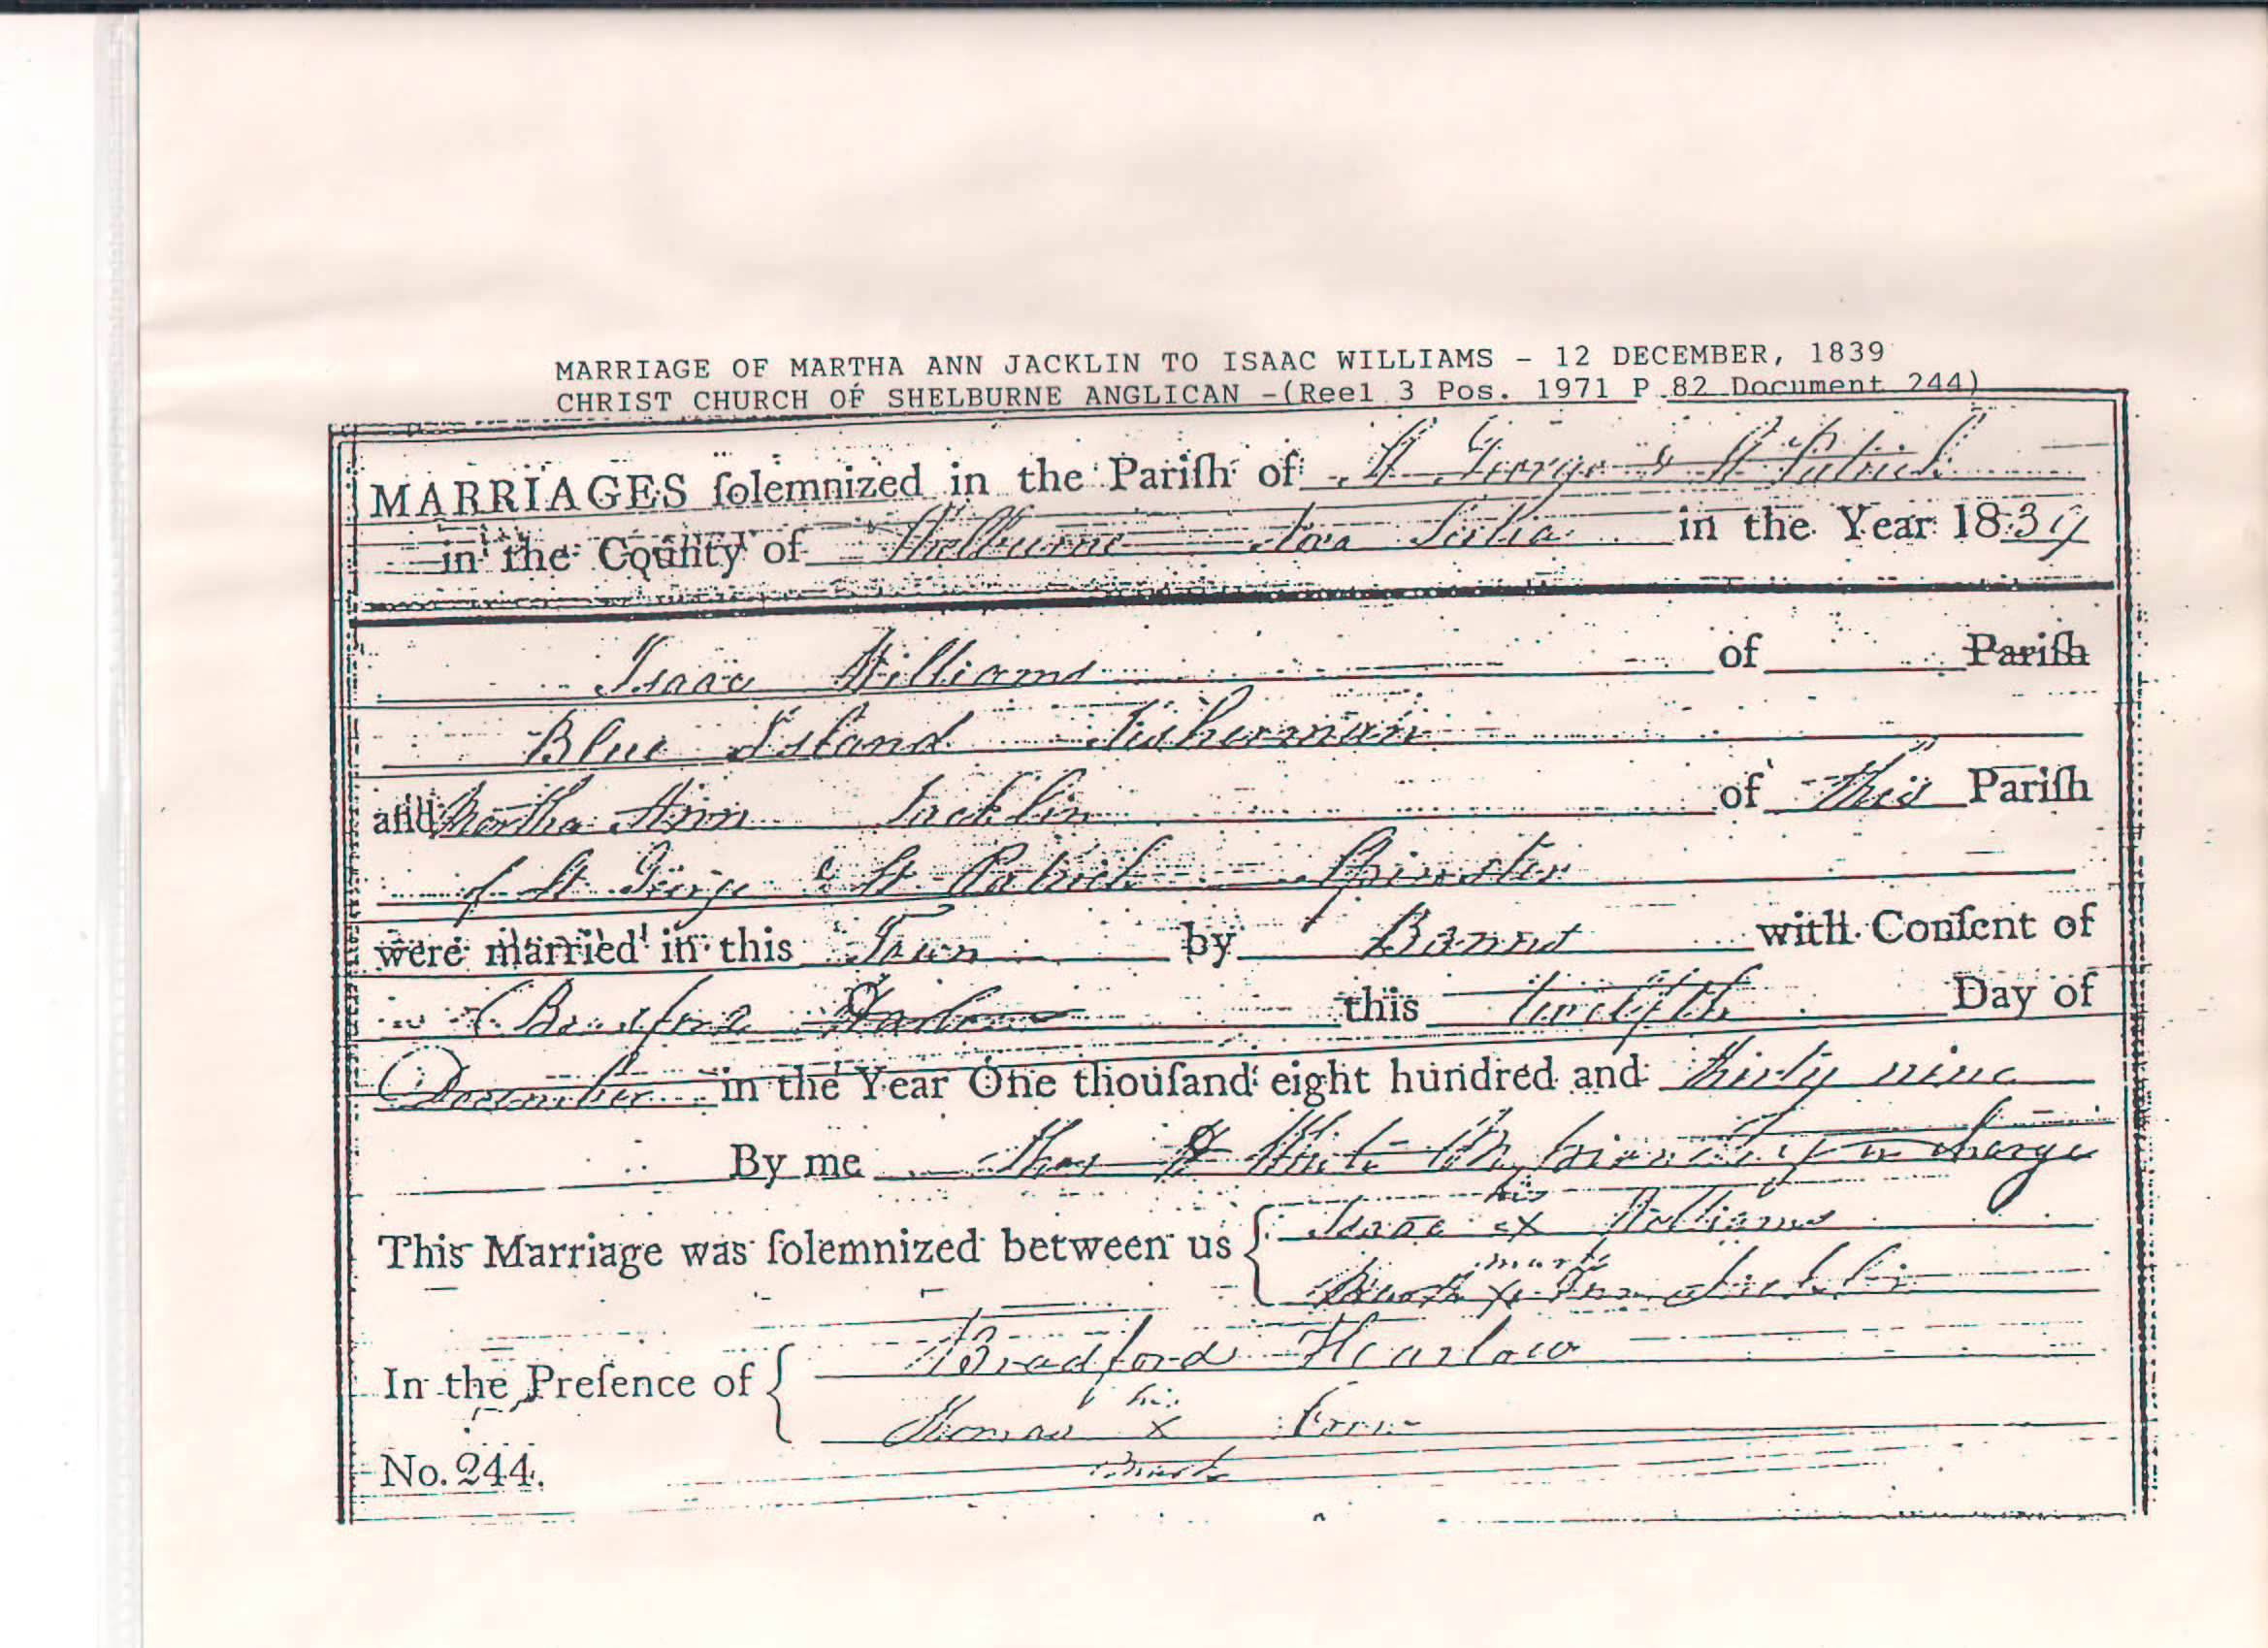 MARRIAGE OF MARTHA ANN JACKLIN TO ISAAC WILLIAMS - 12 DECEMBER, 1839
CHRIST CHURCH OF SHELBURNE ANGLICAN -(Reel 3 Pos. 1971 P 82 Document 244)
MARRIAGES ſolemnized in the Pariſh of St George & St Patrick
in the County of Shelburne Nova Scotia in the Year 1839
Isaac Williams of Pariſh
Blue Island Fisherman
and Martha Ann Jacklin of this Pariſh
of St George & St Patrick Spinster
were married in this Town by Banns with Conſent of
Bradford Harlow this twelfth Day of
December in the Year One thouſand eight hundred and thirty nine
By me Thos H White Missionary in charge
his
This Marriage was ſolemnized between us Isaac x Williams
mark
Martha x Ann Jacklin
Bradford Harlow
In the Preſence of
his
Thomas x
No. 244.
mark